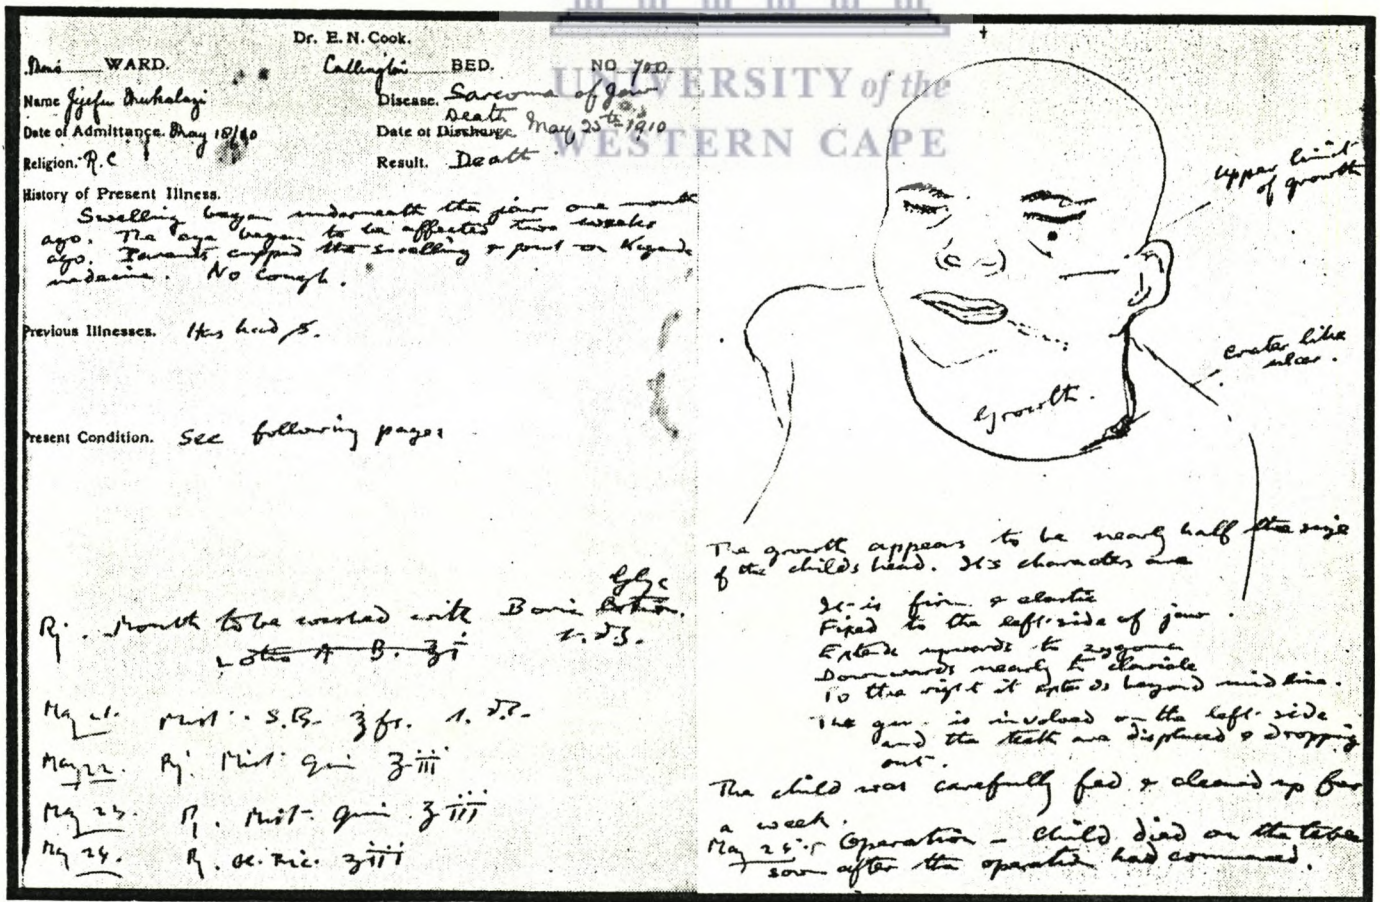 UNIVERSITY of the
WESTERN CAPE
Dr. E. N. Cook.
WARD. BED. NO 700
Name
Disease. Sarcoma of Jaw
Date of Admittance. May 18/10
Death
Date of Discharge May 25th 1910
Religion. R.C
Result. Death
History of Present Illness.
Swelling began underneath the jaw one month
ago. The eye began to be affected two weeks
ago. Parents cupped the swelling & put on
medecine. No Cough.
Previous Illnesses. Has had
Present Condition. See following pages
Mouth to be washed with Boric Lotion.
May 21. Mist. S.B.
May 22. Mist Quin
May 23. Mist Quin
May 24. Ol. Ric.
upper limit
of growth
crater like
ulcer.
Growth.
The growth appears to be nearly half the size
of the childs head. Its characters are
It is firm & elastic
Fixed to the left side of jaw.
Extends upwards to zygoma
Downwards nearly to clavicle
To the right it extends beyond midline.
The gum is involved on the left side
and the teeth are displaced & dropping
out.
The child was carefully fed & cleaned up for
a week.
May 25 Operation – child died on the table
soon after the operation had commenced.